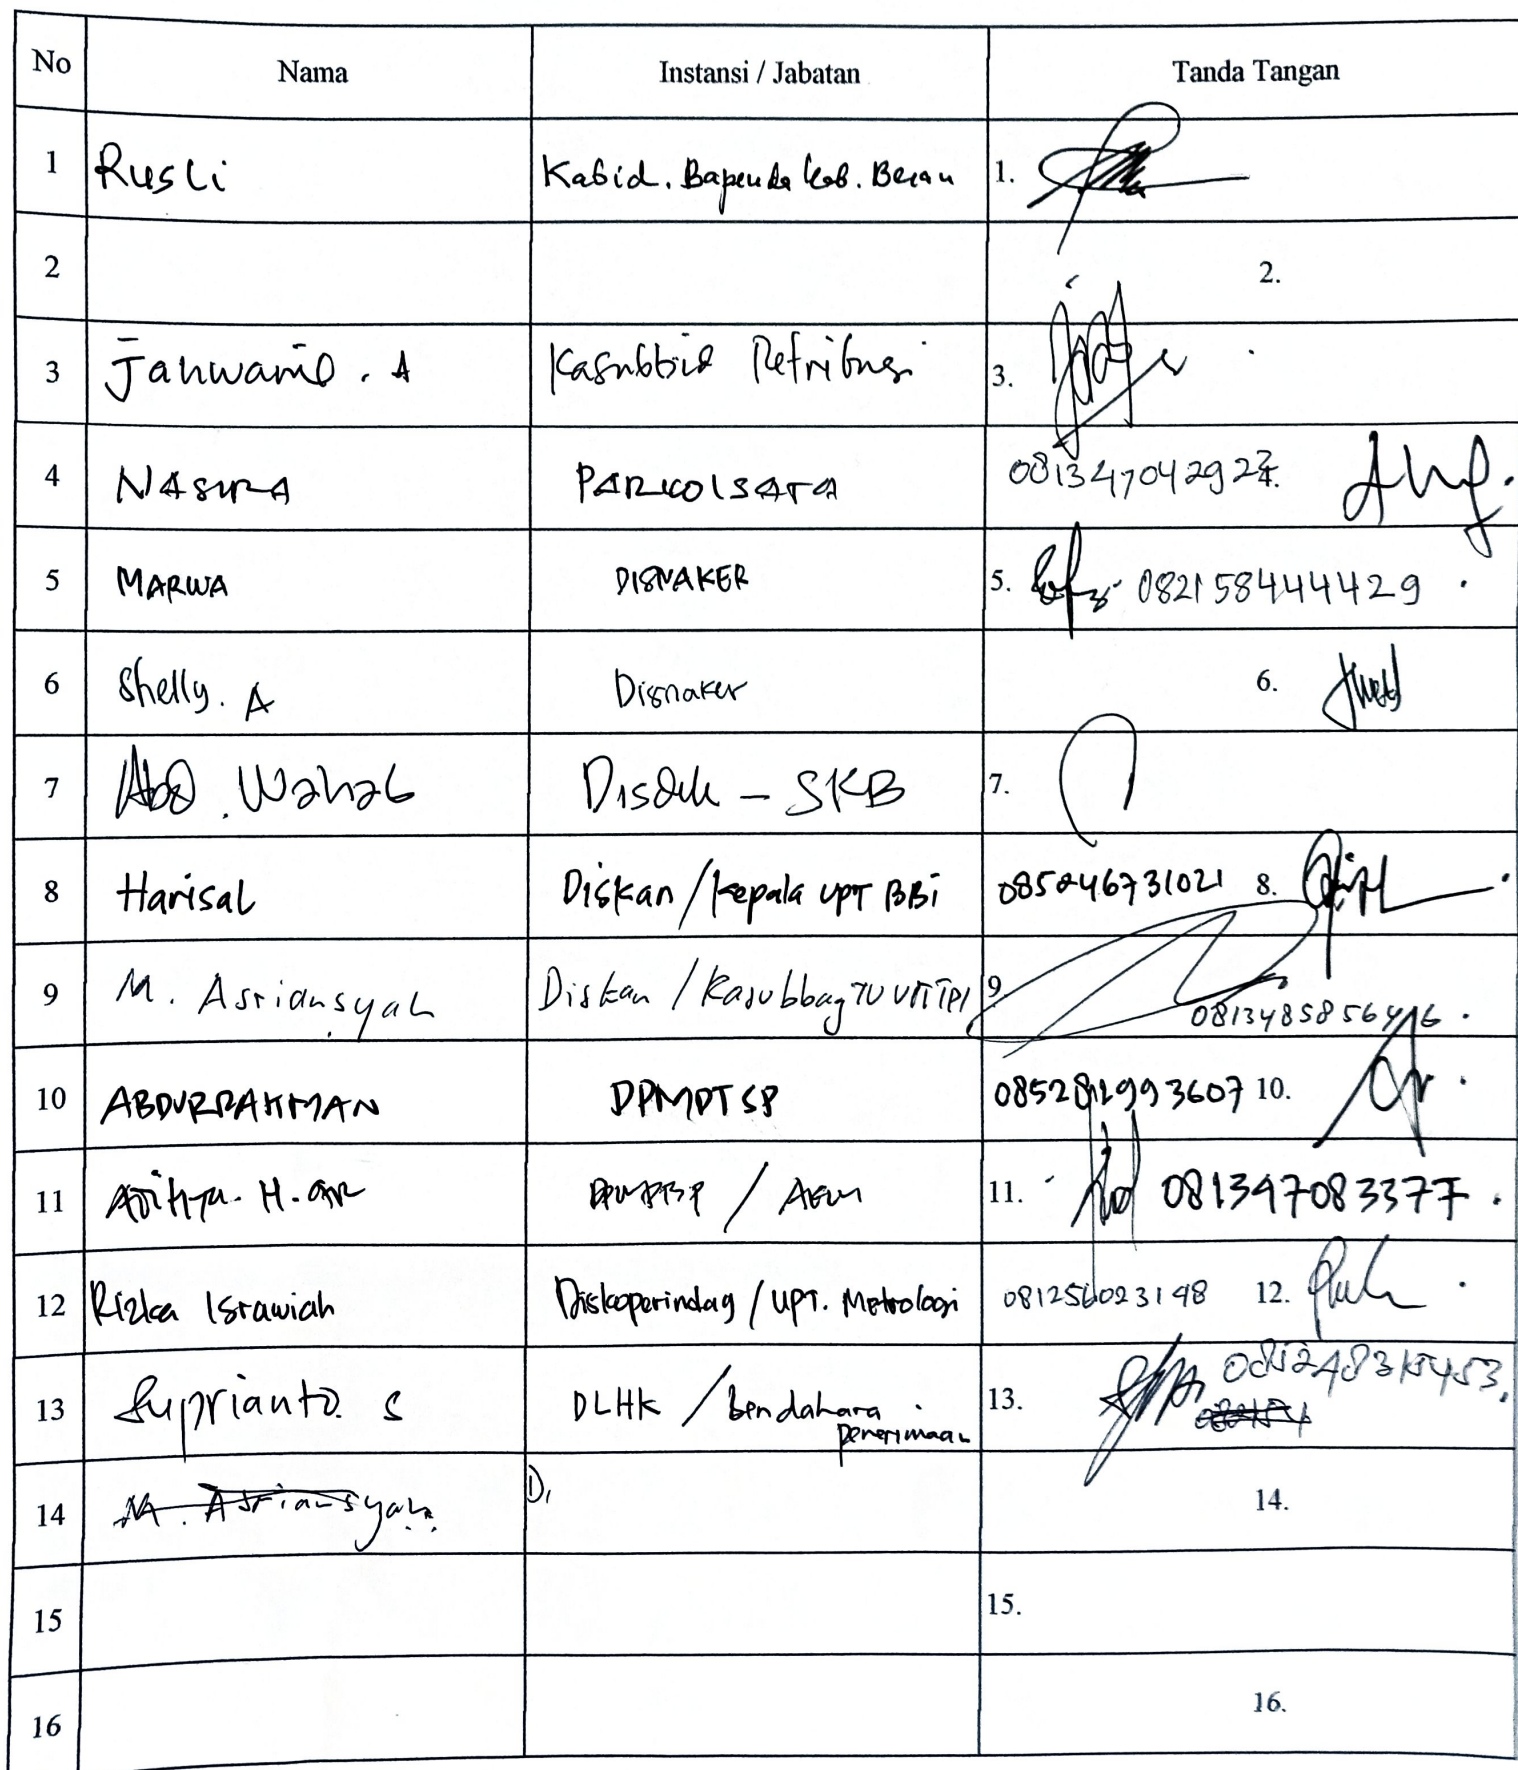 No Nama Instansi / Jabatan Tanda Tangan
1 Rusli Kabid. Bapenda Kab. Berau 1.
2 2.
3 A Kasubbid Retribusi 3.
4 NASIRA 
5 MARWA DISNAKER 5. 082158444429
6 Shelly. A Disnaker 6.
7 Abd. Wahab Disdik - SKB 7.
8 Harisal Diskan / Kepala UPT BBi 085246731021 8.
9 M. Asriansyah Diskan / Kasubbag TU UPT TPI 9
10 ABDURRAHMAN DPMPTSP 10.
11 H. 11. 081347083377
12 Rizka Israwiah Diskoperindag / UPT. Metrologi 081256023148 12.
13 Suprianto. S DLHK / bendahara 13.
penerimaan
14 M. Asriansyah D, 14.
15 15.
16 16.